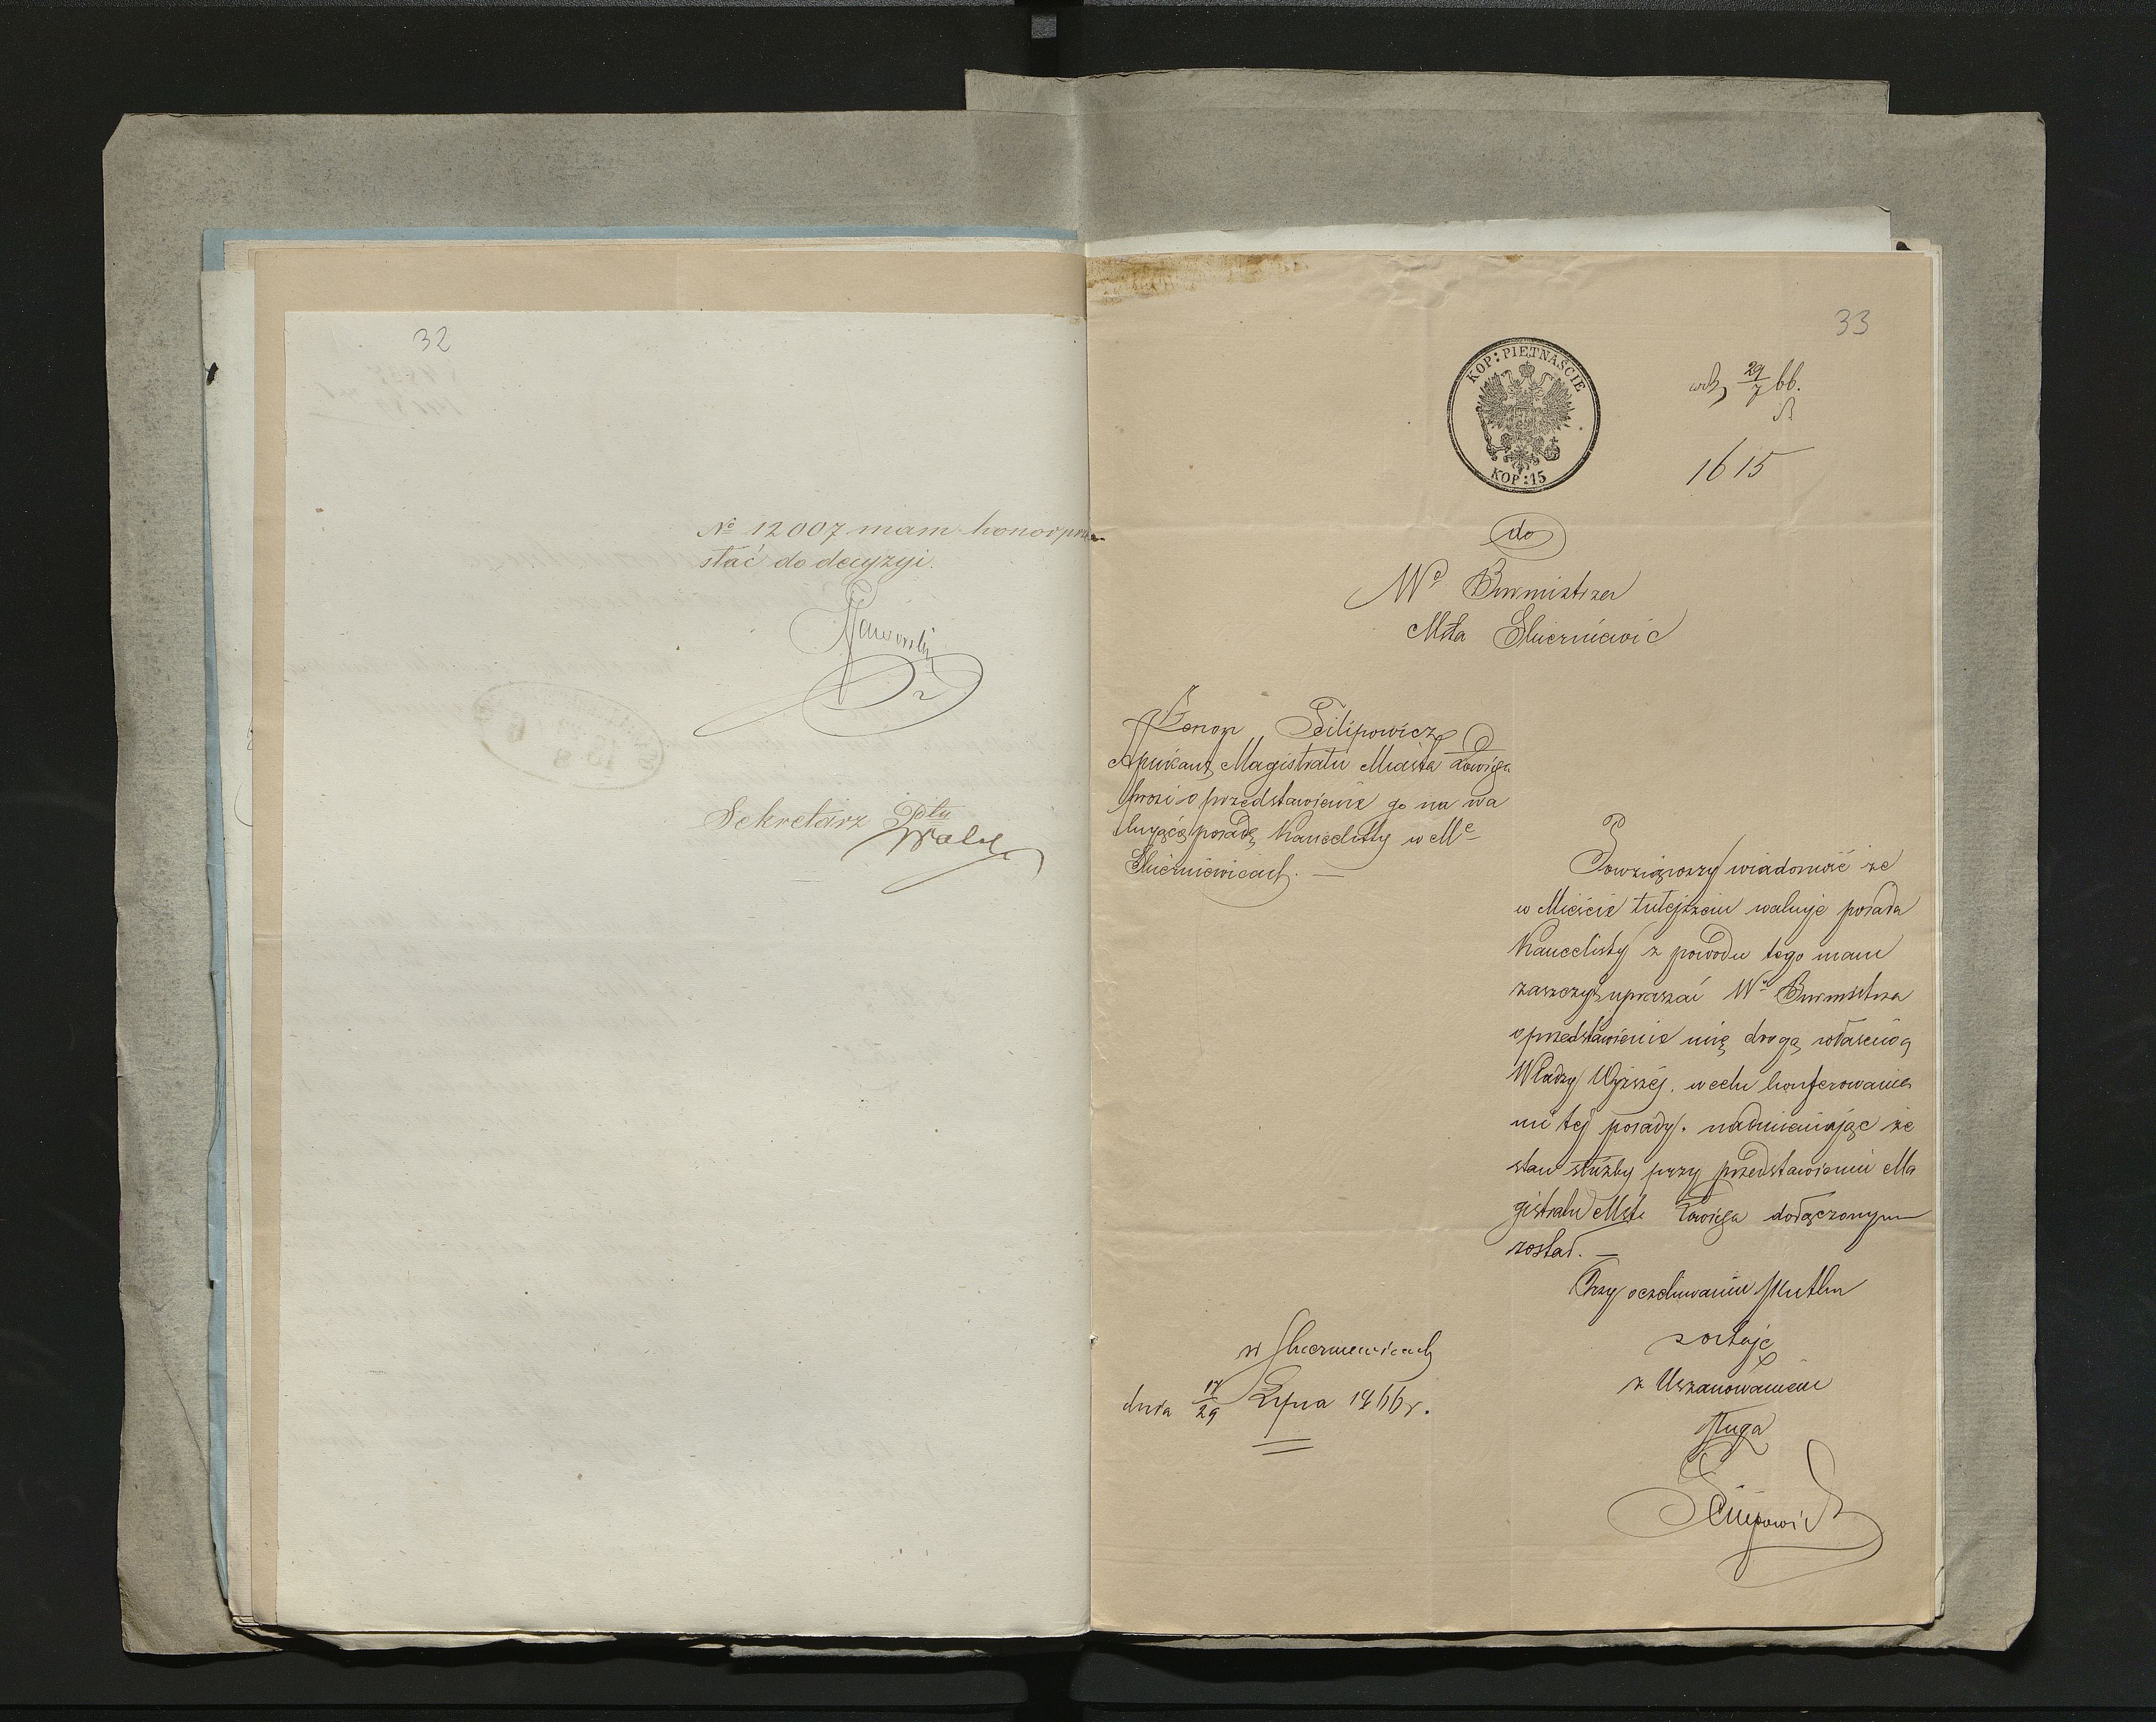 32
№ 12007 mam honor prze
słać do decyzyi.
Sekretarz Ptu
33
KOP: PIĘTNAŚCIE
KOP: 15
29/7 66.
1615
do
Wo Burmistrza
Mta Skierniewic
Zenon Filipowicz
Aplikant Magistratu Miasta Łowicza
prosi o przedstawienie go na wa
kującą posadę Kancelisty w Me
Skierniewicach. —
Powziąwszy wiadomość że
w Mieście tutejszem wakuje posada
Kancelisty z powodu tego mam
zaszczyt upraszać Wo Burmistrza
o przedstawienie mię drogą właściwą
Władzy Wyższej. w celu konferowania
mi tej posady. nadmieniając że
stan służby przy przedstawieniu Ma
gistratu Mta Łowicza dołączonym
został. —
Przy oczekiwaniu skutku
zostaję
z Uszanowaniem
sługa
Filipowicz
w Skierniewicach
dnia 17/29 Lipca 1866 r.